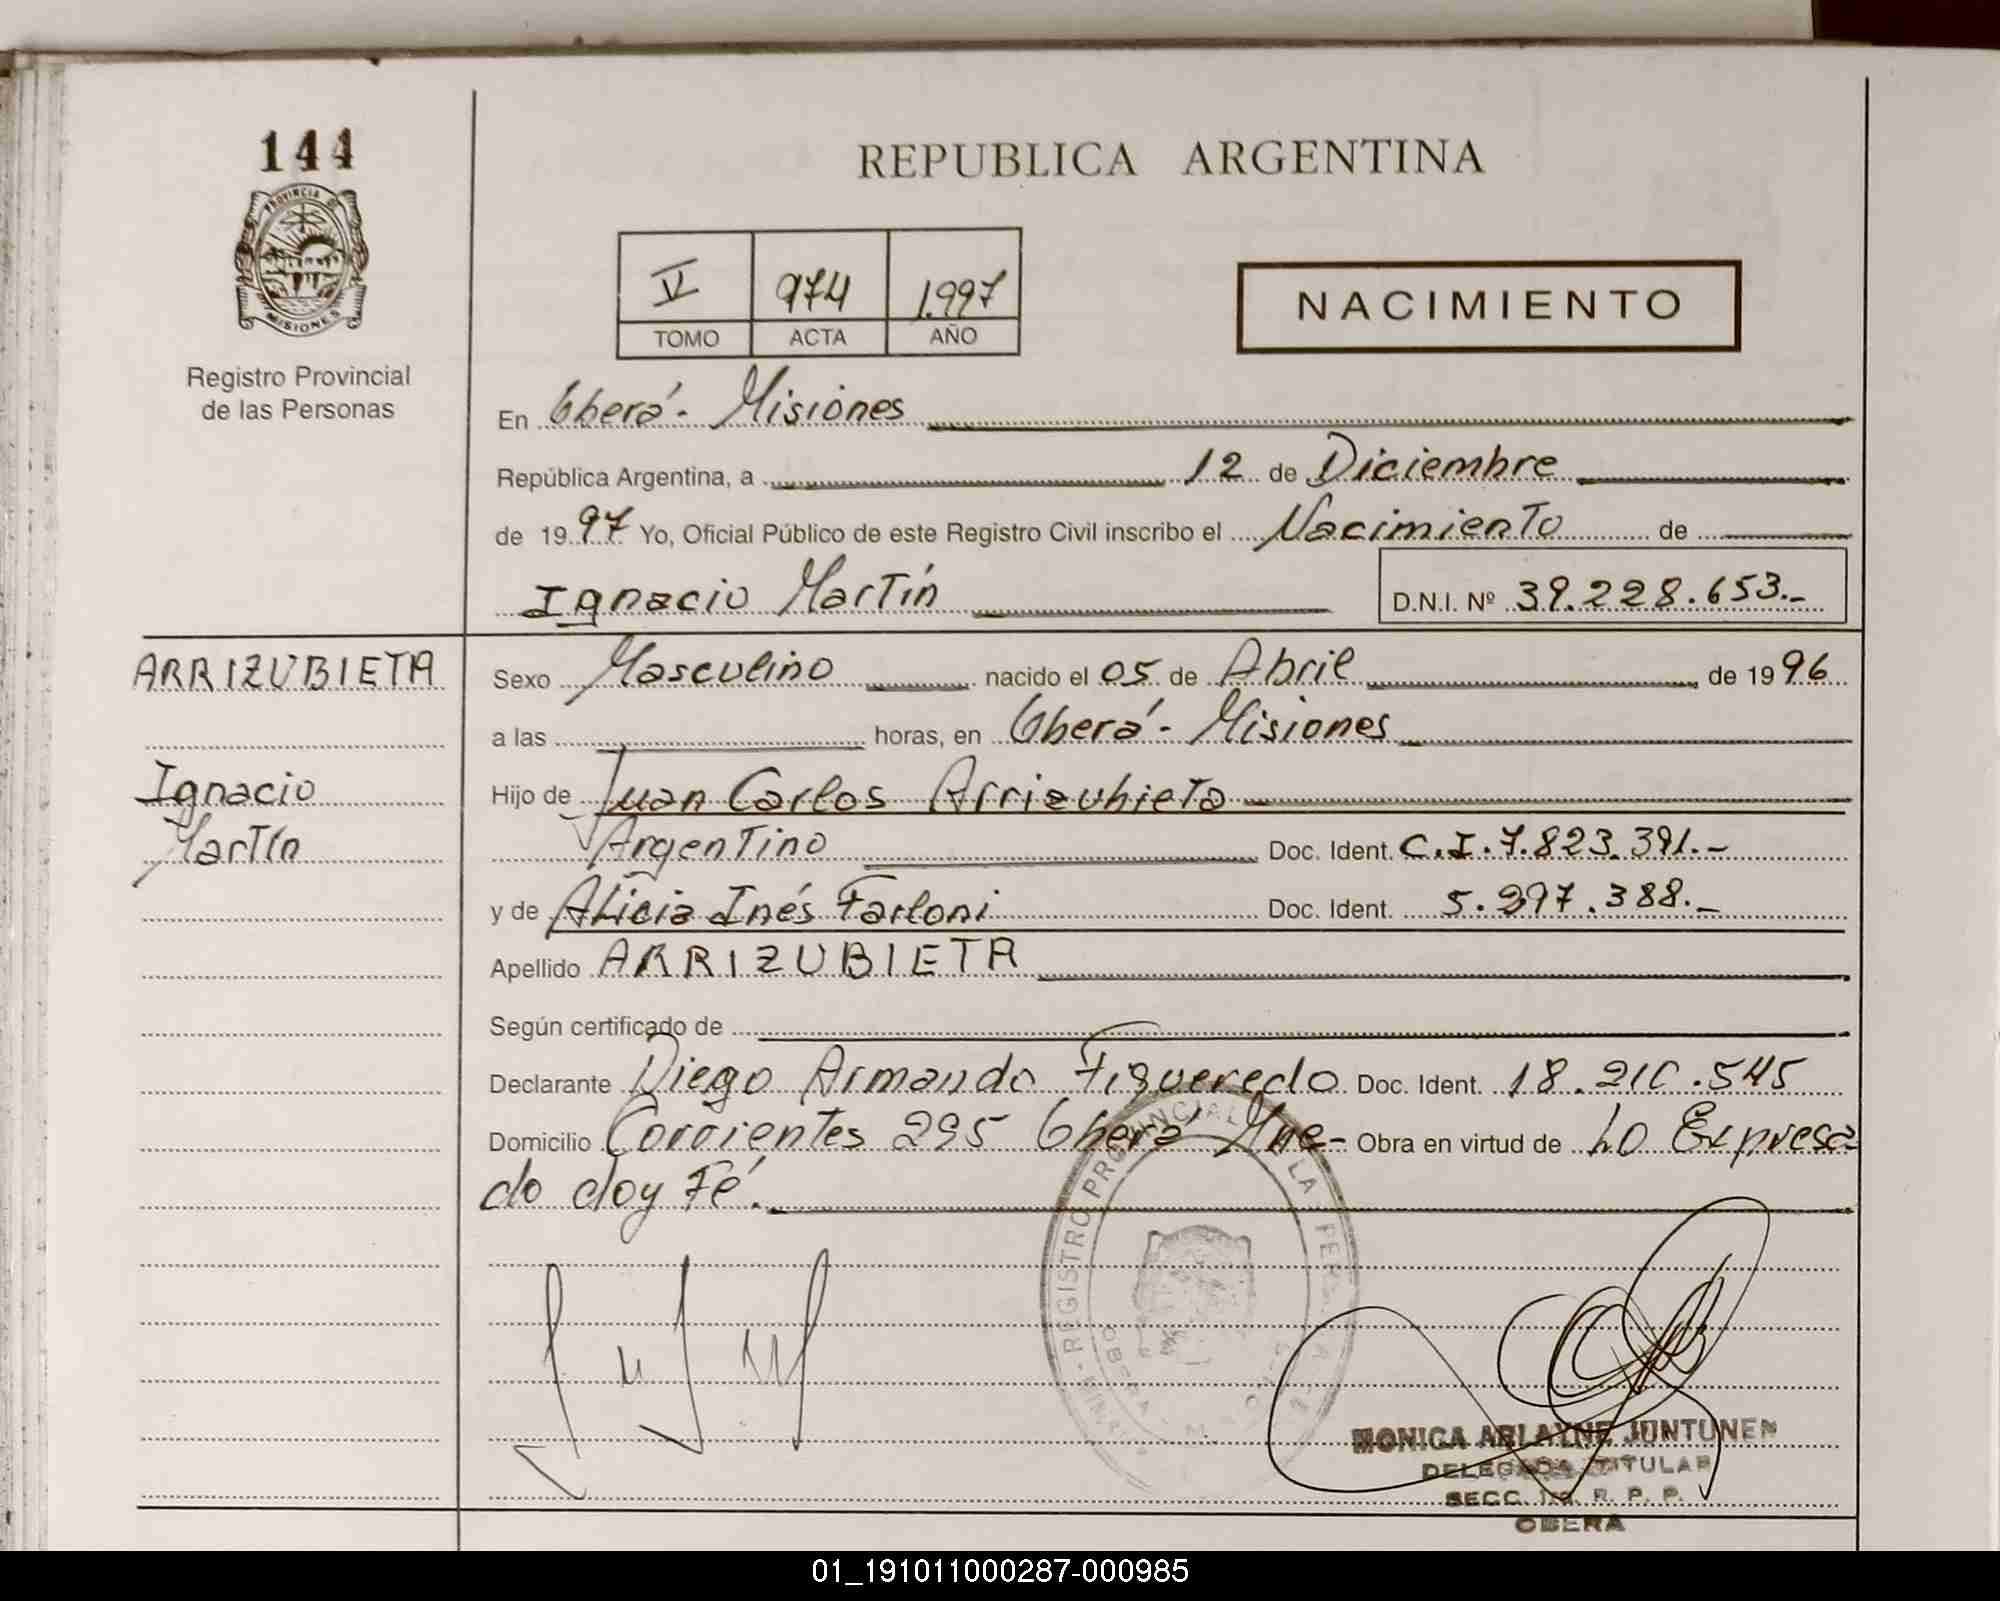 144
PROVINCIA D
MISIONES
Registro Provincial
de las Personas
REPUBLICA ARGENTINA
V 974 1.997
TOMO ACTA AÑO
NACIMIENTO
En Oberá - Misiones
República Argentina, a 12 de Diciembre
de 1997 Yo, Oficial Público de este Registro Civil inscribo el Nacimiento de
Ignacio Martín D.N.I. Nº 39.228.653.-
ARRIZUBIETA
Ignacio
Martín
Sexo Masculino nacido el 05 de Abril de 1996
a las horas, en Oberá - Misiones
Hijo de Juan Carlos Arrizubieta
Argentino Doc. Ident. C.I. 7.823.391.-
y de Alicia Inés Farloni Doc. Ident. 5.297.388.-
Apellido ARRIZUBIETA
Según certificado de
Declarante Diego Armando Figueredo Doc. Ident. 18.210.545
Domicilio Corrientes 295 Oberá Mnes- Obra en virtud de Lo Expresa
do doy Fé.
REGISTRO PROVINCIAL LA PER
OBERA
MONICA ARLAYNE JUNTUNEN
DELEGADA TITULAR
SECC. R. P. P.
OBERA
01_191011000287-000985